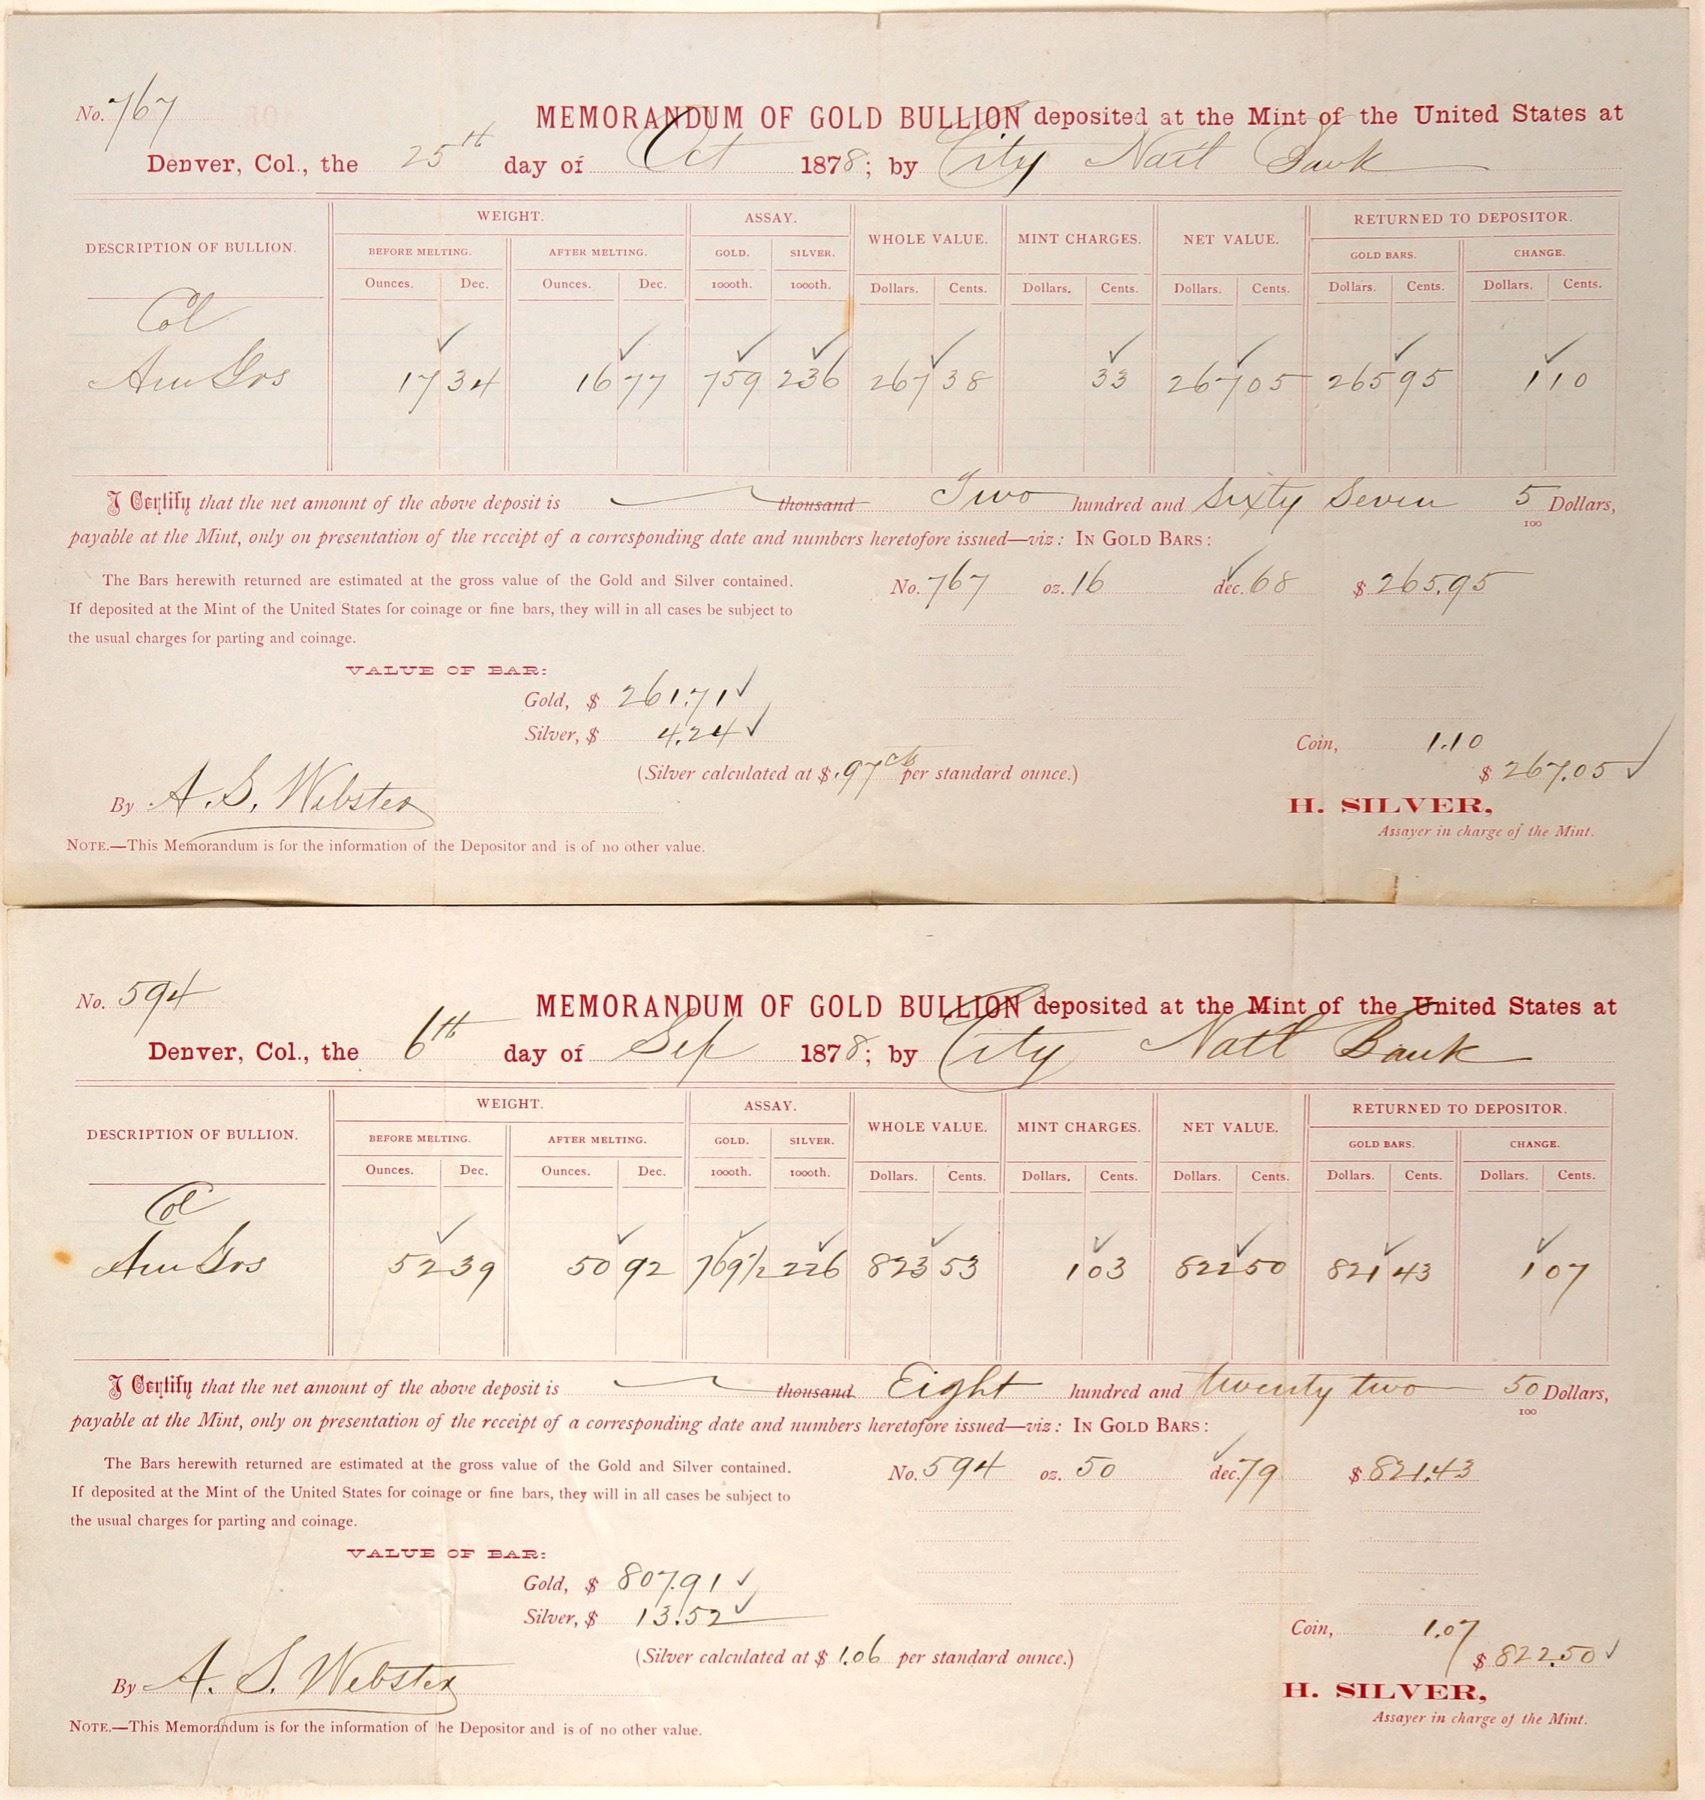 No. 767
MEMORANDUM OF GOLD BULLION deposited at the Mint of the United States at
Denver, Col., the 25th day of Oct 1878; by City Natl Bank
DESCRIPTION OF BULLION. WEIGHT. ASSAY. WHOLE VALUE. MINT CHARGES. NET VALUE. RETURNED TO DEPOSITOR.
BEFORE MELTING. AFTER MELTING. GOLD. SILVER. GOLD BARS. CHANGE.
Ounces. Dec. Ounces. Dec. 1000th. 1000th. Dollars. Cents. Dollars. Cents. Dollars. Cents. Dollars. Cents. Dollars. Cents.
Col
Am Grs 17 34 16 77 759 236 267 38 33 267 05 265 95 1 10
I Certify that the net amount of the above deposit is thousand Two hundred and Sixty Seven 5/100 Dollars,
payable at the Mint, only on presentation of the receipt of a corresponding date and numbers heretofore issued—viz: IN GOLD BARS:
The Bars herewith returned are estimated at the gross value of the Gold and Silver contained.
If deposited at the Mint of the United States for coinage or fine bars, they will in all cases be subject to
the usual charges for parting and coinage.
No. 767 oz. 16 dec. 68 $ 265.95
VALUE OF BAR:
Gold, $ 261.71
Silver, $ 4.24
(Silver calculated at $ .97 cts per standard ounce.)
Coin, 1.10
$ 267.05
By A. S. Webster
H. SILVER,
Assayer in charge of the Mint.
NOTE.—This Memorandum is for the information of the Depositor and is of no other value.
No. 594
MEMORANDUM OF GOLD BULLION deposited at the Mint of the United States at
Denver, Col., the 6th day of Sep 1878; by City Natl Bank
DESCRIPTION OF BULLION. WEIGHT. ASSAY. WHOLE VALUE. MINT CHARGES. NET VALUE. RETURNED TO DEPOSITOR.
BEFORE MELTING. AFTER MELTING. GOLD. SILVER. GOLD BARS. CHANGE.
Ounces. Dec. Ounces. Dec. 1000th. 1000th. Dollars. Cents. Dollars. Cents. Dollars. Cents. Dollars. Cents. Dollars. Cents.
Col
Am Grs 52 39 50 92 769½ 226 823 53 1 03 822 50 821 43 1 07
I Certify that the net amount of the above deposit is thousand Eight hundred and twenty two 50/100 Dollars,
payable at the Mint, only on presentation of the receipt of a corresponding date and numbers heretofore issued—viz: IN GOLD BARS:
The Bars herewith returned are estimated at the gross value of the Gold and Silver contained.
If deposited at the Mint of the United States for coinage or fine bars, they will in all cases be subject to
the usual charges for parting and coinage.
No. 594 oz. 50 dec. 79 $ 821.43
VALUE OF BAR:
Gold, $ 807.91
Silver, $ 13.52
(Silver calculated at $ 1.06 per standard ounce.)
Coin, 1.07
$ 822.50
By A. S. Webster
H. SILVER,
Assayer in charge of the Mint.
NOTE.—This Memorandum is for the information of the Depositor and is of no other value.